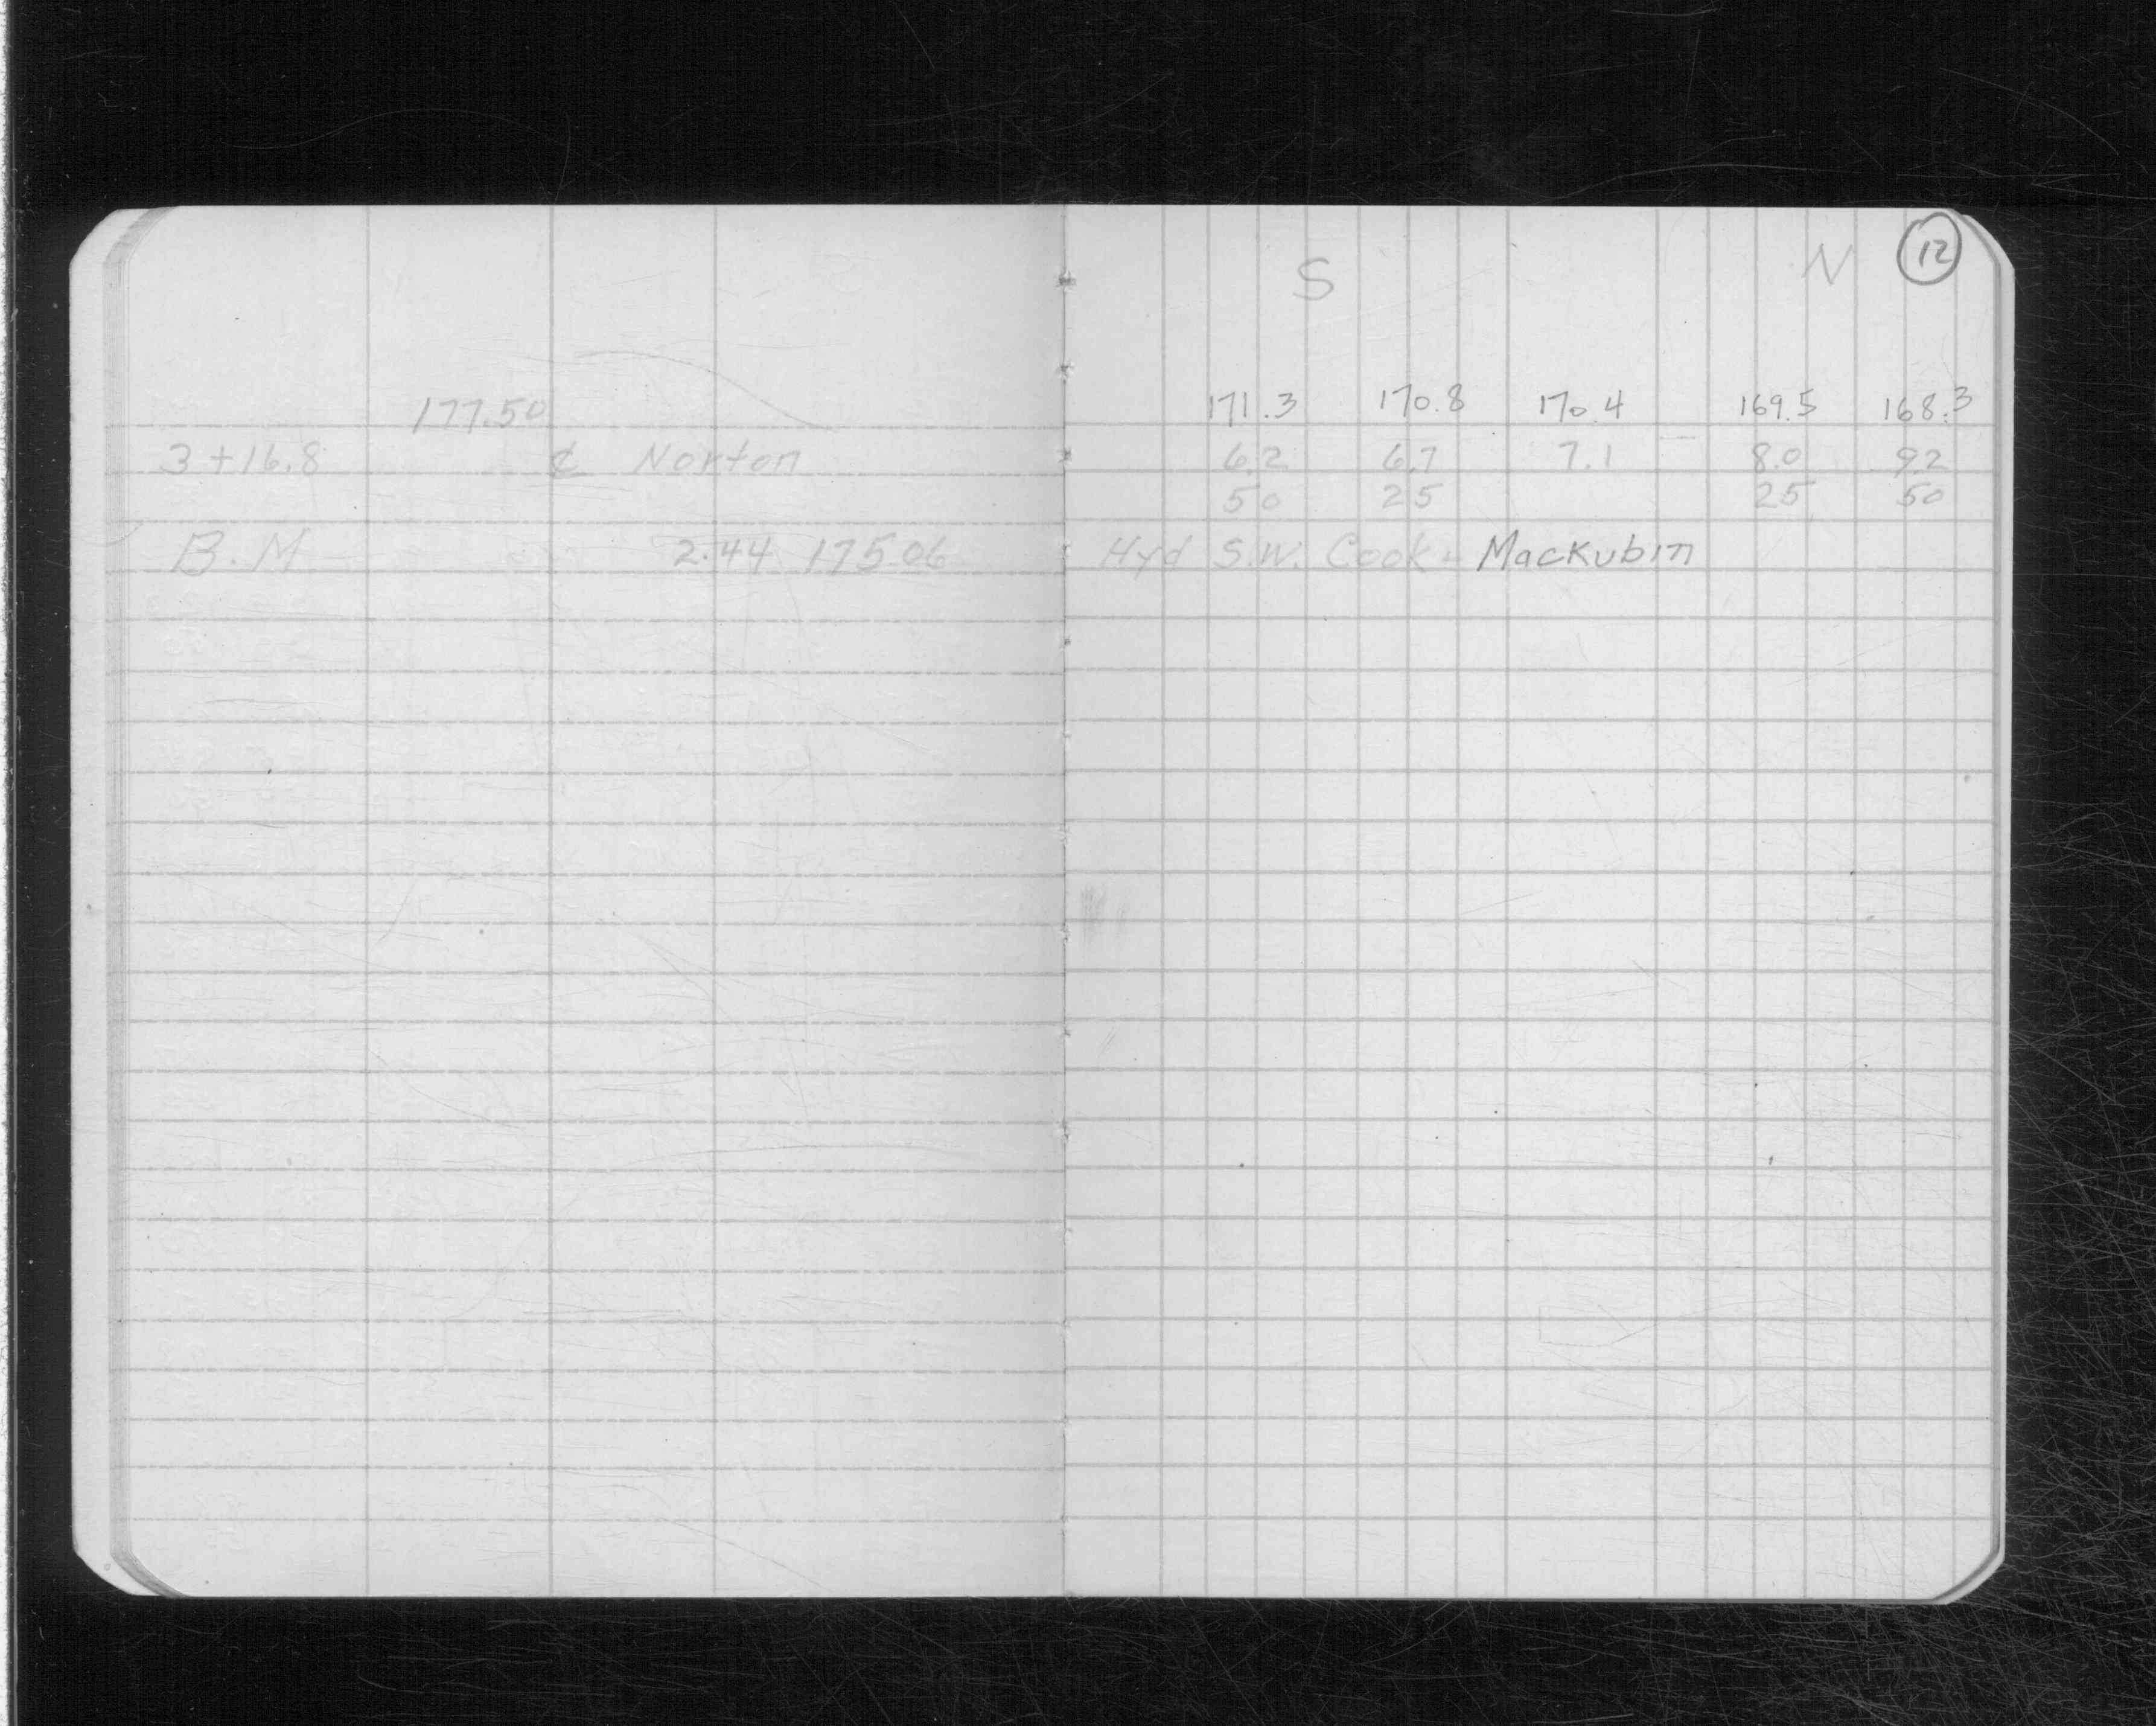 177.50
3+16.8 ℄ Norton
B.M 2.44 175.06
S N 12
171.3 170.8 170.4 169.5 168.3
6.2 6.7 7.1 8.0 9.2
50 25 25 50
Hyd S.W. Cook - Mackubin